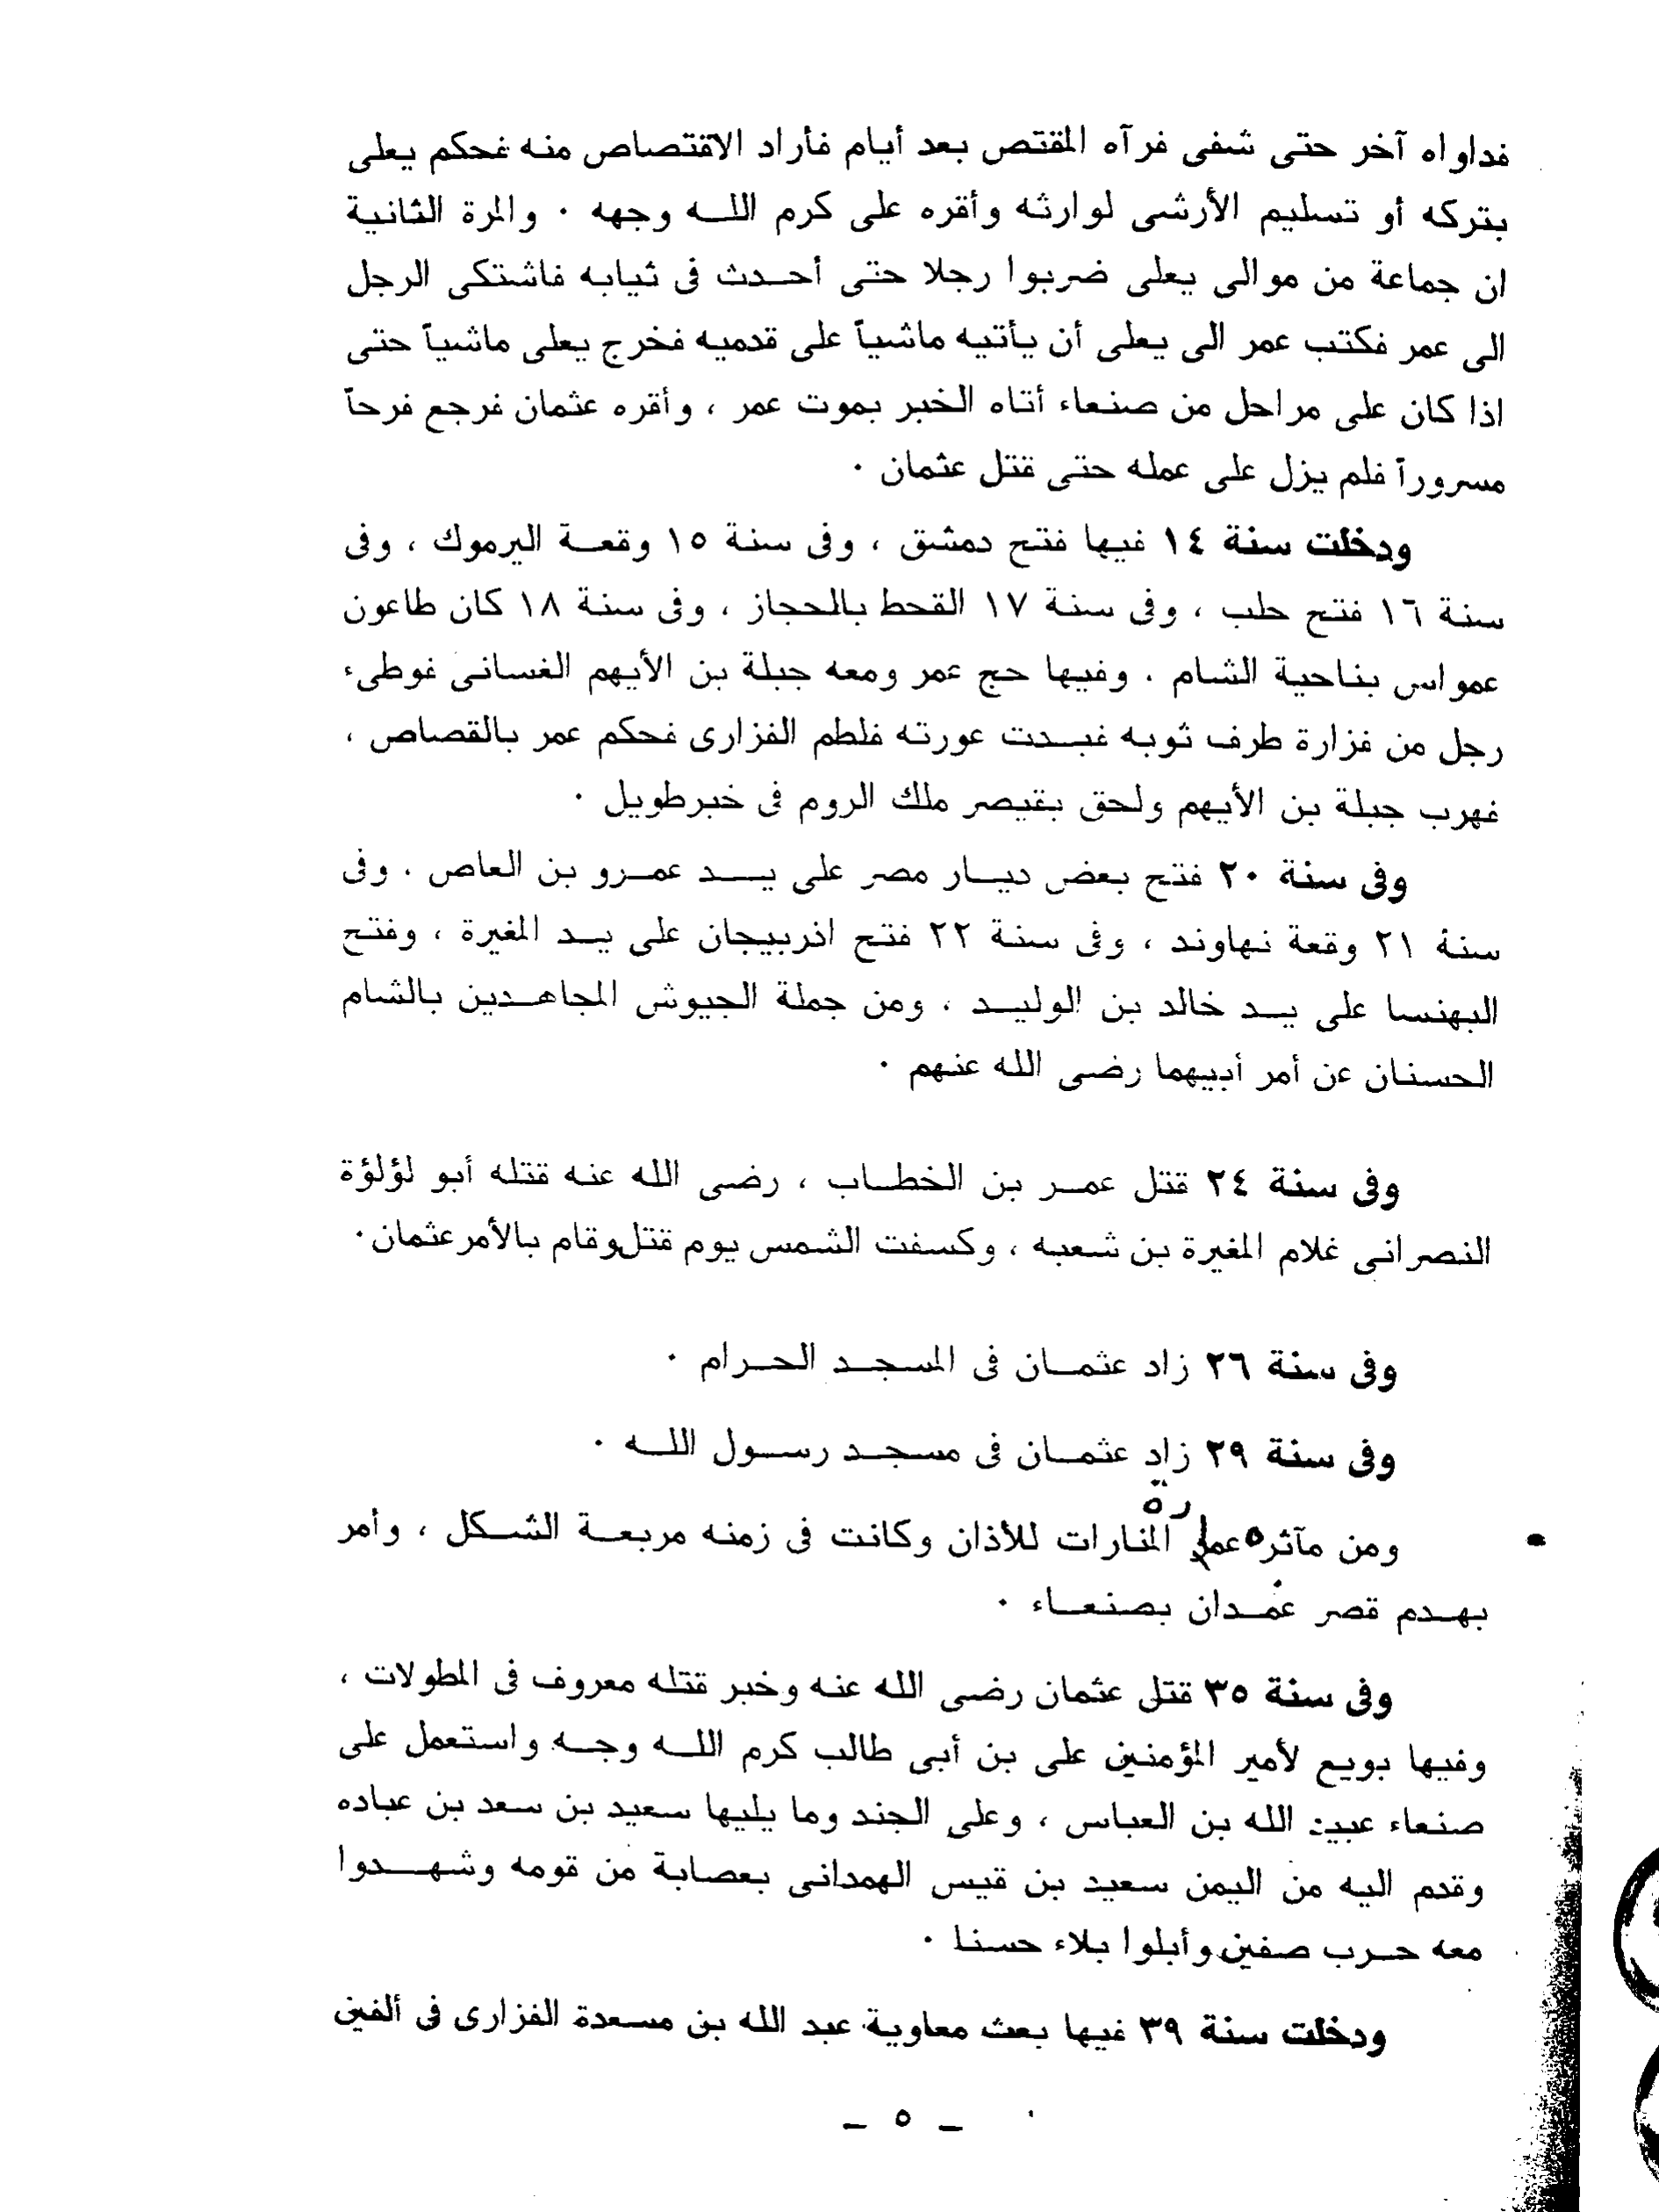 فداواه آخر حتى شفى فرآه المقتص بعد أيام فأراد الاقتصاص منه فحكم يعلى
بتركه أو تسليم الأرشى لوارثه وأقره على كرم اللـه وجهه ٠ والمرة الثانية
ان جماعة من موالى يعلى ضربوا رجلا حتى أحدث فى ثيابه فاشتكى الرجل
الى عمر فكتب عمر الى يعلى أن يأتيه ماشياً على قدميه فخرج يعلى ماشياً حتى
اذا كان على مراحل من صنعاء أتاه الخبر بموت عمر ، وأقره عثمان فرجع فرحاً
مسروراً فلم يزل على عمله حتى قتل عثمان ٠
ودخلت سنة ١٤ فيها فتح دمشق ، وفى سنة ١٥ وقعة اليرموك ، وفى
سنة ١٦ فتح حلب ، وفى سنة ١٧ القحط بالحجاز ، وفى سنة ١٨ كان طاعون
عمواس بناحية الشام . وفيها حج عمر ومعه جبلة بن الأيهم الغسانى فوطىء
رجل من فزارة طرف ثوبه فبدت عورته فلطم الفزارى فحكم عمر بالقصاص ،
فهرب جبلة بن الأيهم ولحق بقيصر ملك الروم فى خبر طويل ٠
وفى سنة ٢٠ فتح بعض ديار مصر على يد عمرو بن العاص . وفى
سنة ٢١ وقعة نهاوند ، وفى سنة ٢٢ فتح اذربيجان على يد المغيرة ، وفتح
البهنسا على يد خالد بن الوليد ، ومن جملة الجيوش المجاهدين بالشام
الحسنان عن أمر أبيهما رضى الله عنهم ٠
وفى سنة ٢٤ قتل عمر بن الخطاب ، رضى الله عنه قتله أبو لؤلؤة
النصرانى غلام المغيرة بن شعبه ، وكسفت الشمس يوم قتل وقام بالأمر عثمان ٠
وفى سنة ٢٦ زاد عثمان فى المسجد الحرام ٠
وفى سنة ٢٩ زاد عثمان فى مسجد رسول اللـه ٠
ومن مآثره عمارة المنارات للأذان وكانت فى زمنه مربعة الشكل ، وأمر
بهدم قصر غمدان بصنعاء ٠
وفى سنة ٣٥ قتل عثمان رضى الله عنه وخبر قتله معروف فى المطولات ،
وفيها بويع لأمير المؤمنين على بن أبى طالب كرم اللـه وجهه واستعمل على
صنعاء عبيد الله بن العباس ، وعلى الجند وما يليها سعيد بن سعد بن عباده
وقدم اليه من اليمن سعيد بن قيس الهمدانى بعصابة من قومه وشهدوا
معه حرب صفين وأبلوا بلاء حسنا ٠
ودخلت سنة ٣٩ فيها بعث معاوية عبد الله بن مسعدة الفزارى فى ألفين
— ٥ —